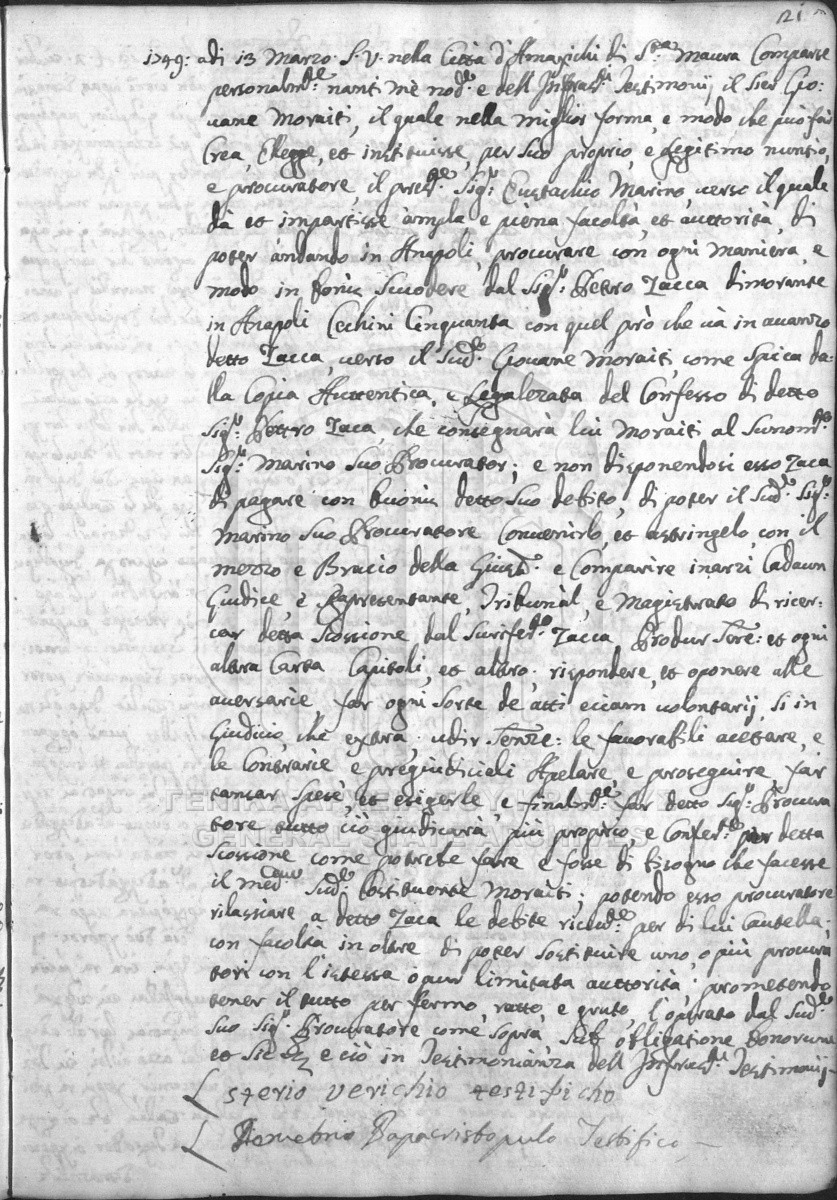 121
1749: adi 13 Marzo S.V. nella Città d'Amaxichi di S.ta Maura Comparse
personalm.te nanti mè nod.o e dell'Infras.ti Testimonij il Sier Gio:
vane Moraiti, il quale nella miglior forma, e modo che può far
Crea, Ellegge, et instituisse, per suo proprio, e legitimo nuntio,
e procuratore, il pres.te Sig.r Eustachio Marino, verso il quale
dà et impartisse ampla e piena facoltà, et auttorità, di
poter andando in Anapoli, procurare con ogni maniera, e
modo in Scuodere dal Sig.r Pettro Zacca dimorante
in Anapoli Cechini Cinquanta con quel prò che và in avanzo
detto Zacca, verso il sud.o Giovane Moraiti, come spica da:
lla Copia Auttentica, e Legalezata del Confesso di detto
Sig.r Pettro Zaca, che consegnarà lui Moraiti al sunom.to
Sig.r Marino suo Procurator; e non disponendosi esso Zaca
di pagare con detto suo debito, di poter il sud.o Sig.r
Marino suo Procuratore Convenirlo, et astringelo, con il
mezzo e Bracio della Giust.a e Comparire inanzi Cadaun
Giudice, e Rapresentante, Tribunàl, e Magistrato di ricer:
car detta Scossione dal Surifer.to Zacca Produr et ogni
altra Carta Capitoli, et altro, rispondere, et oponere alle
aversarie far ogni sorte de atti eciam volontarij, si in
Giudicio, che extra, udir Senze: le favorabili acettare, e
le Contrarie e pregiudiciali Apelare e proseguire, far
tansar spese, et esigerle, e finalm.te far detto Sig.r Procura
tore tutto ciò giudicarà più proprio, e Confer.te per detta
Scossione come potrebe fare e fosse di bisogno che facesse
il med.mo sud.o Costituente Moraiti; potendo esso procuratore
rilassiare a detto Zaca le debite ricevd.e per di lui Cautella;
con facoltà in oltre di poter sostituire uno, o più procura
tori con l'istessa ò pur limitata auttorità; prometendo
tener il tutto per fermo, ratto, e grato, l'operato dal sud.o
suo Sig.r Procuratore come sopra, sub obligatione bonorum
et sic e ciò in Testimonianza dell'Infrass.ti Testimonij
Sterio verichio testificho
Dimetrio Papacristopulo Testifico
ΓΕΝΙΚΑ
GENERAL STATE ARCHIVES